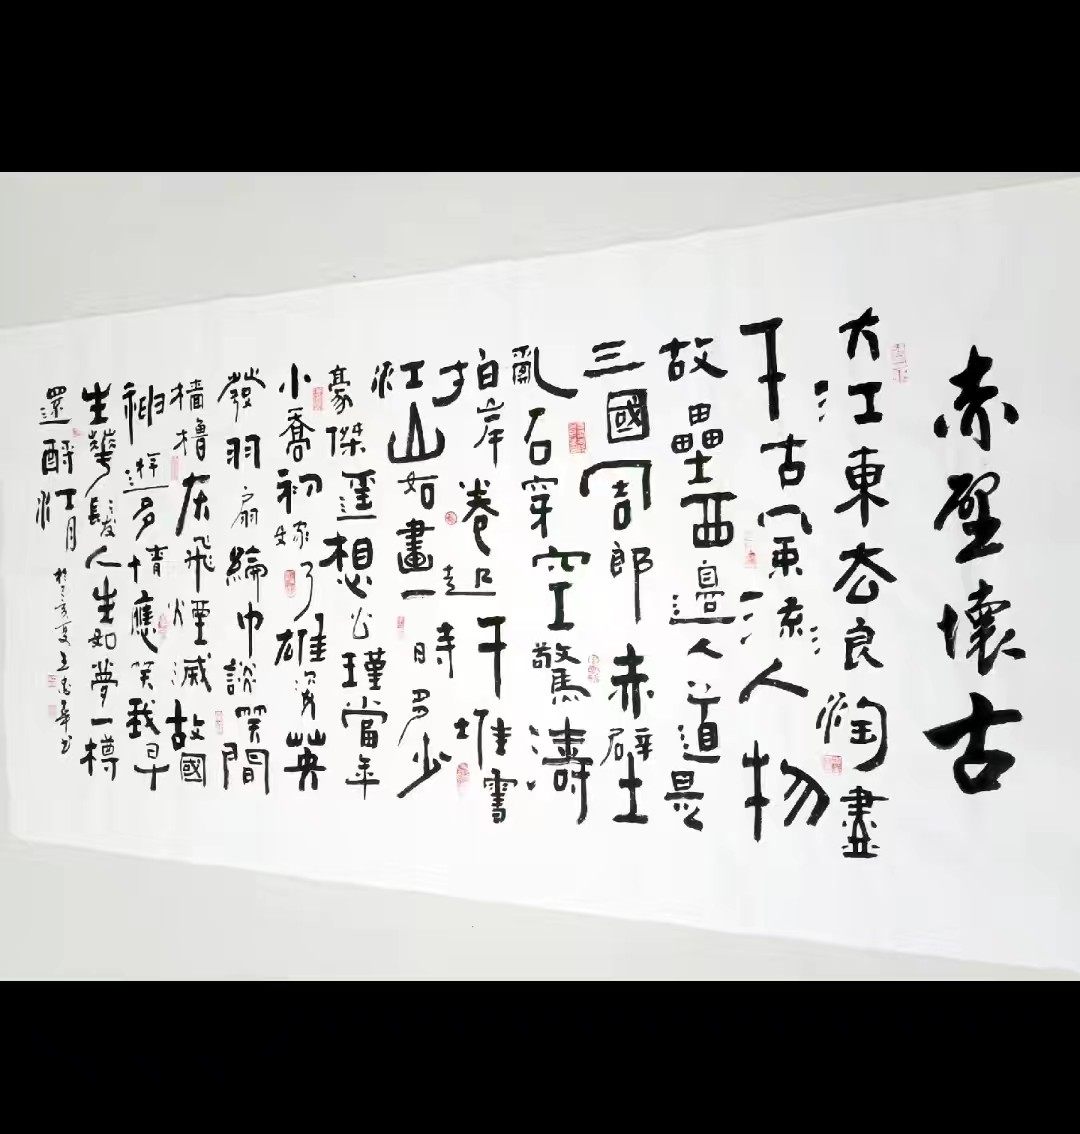 赤壁懷古
大江東去浪淘盡
千古風流人物
故壘西邊人道是
三國周郎赤壁
亂石穿空驚濤
拍岸卷起千堆雪
江山如畫一時多少
豪傑遙想公瑾當年
小喬初嫁了雄姿英
發羽扇綸巾談笑間
檣櫓灰飛煙滅故國
神遊多情應笑我早
生華髮人生如夢一樽
還酹江月